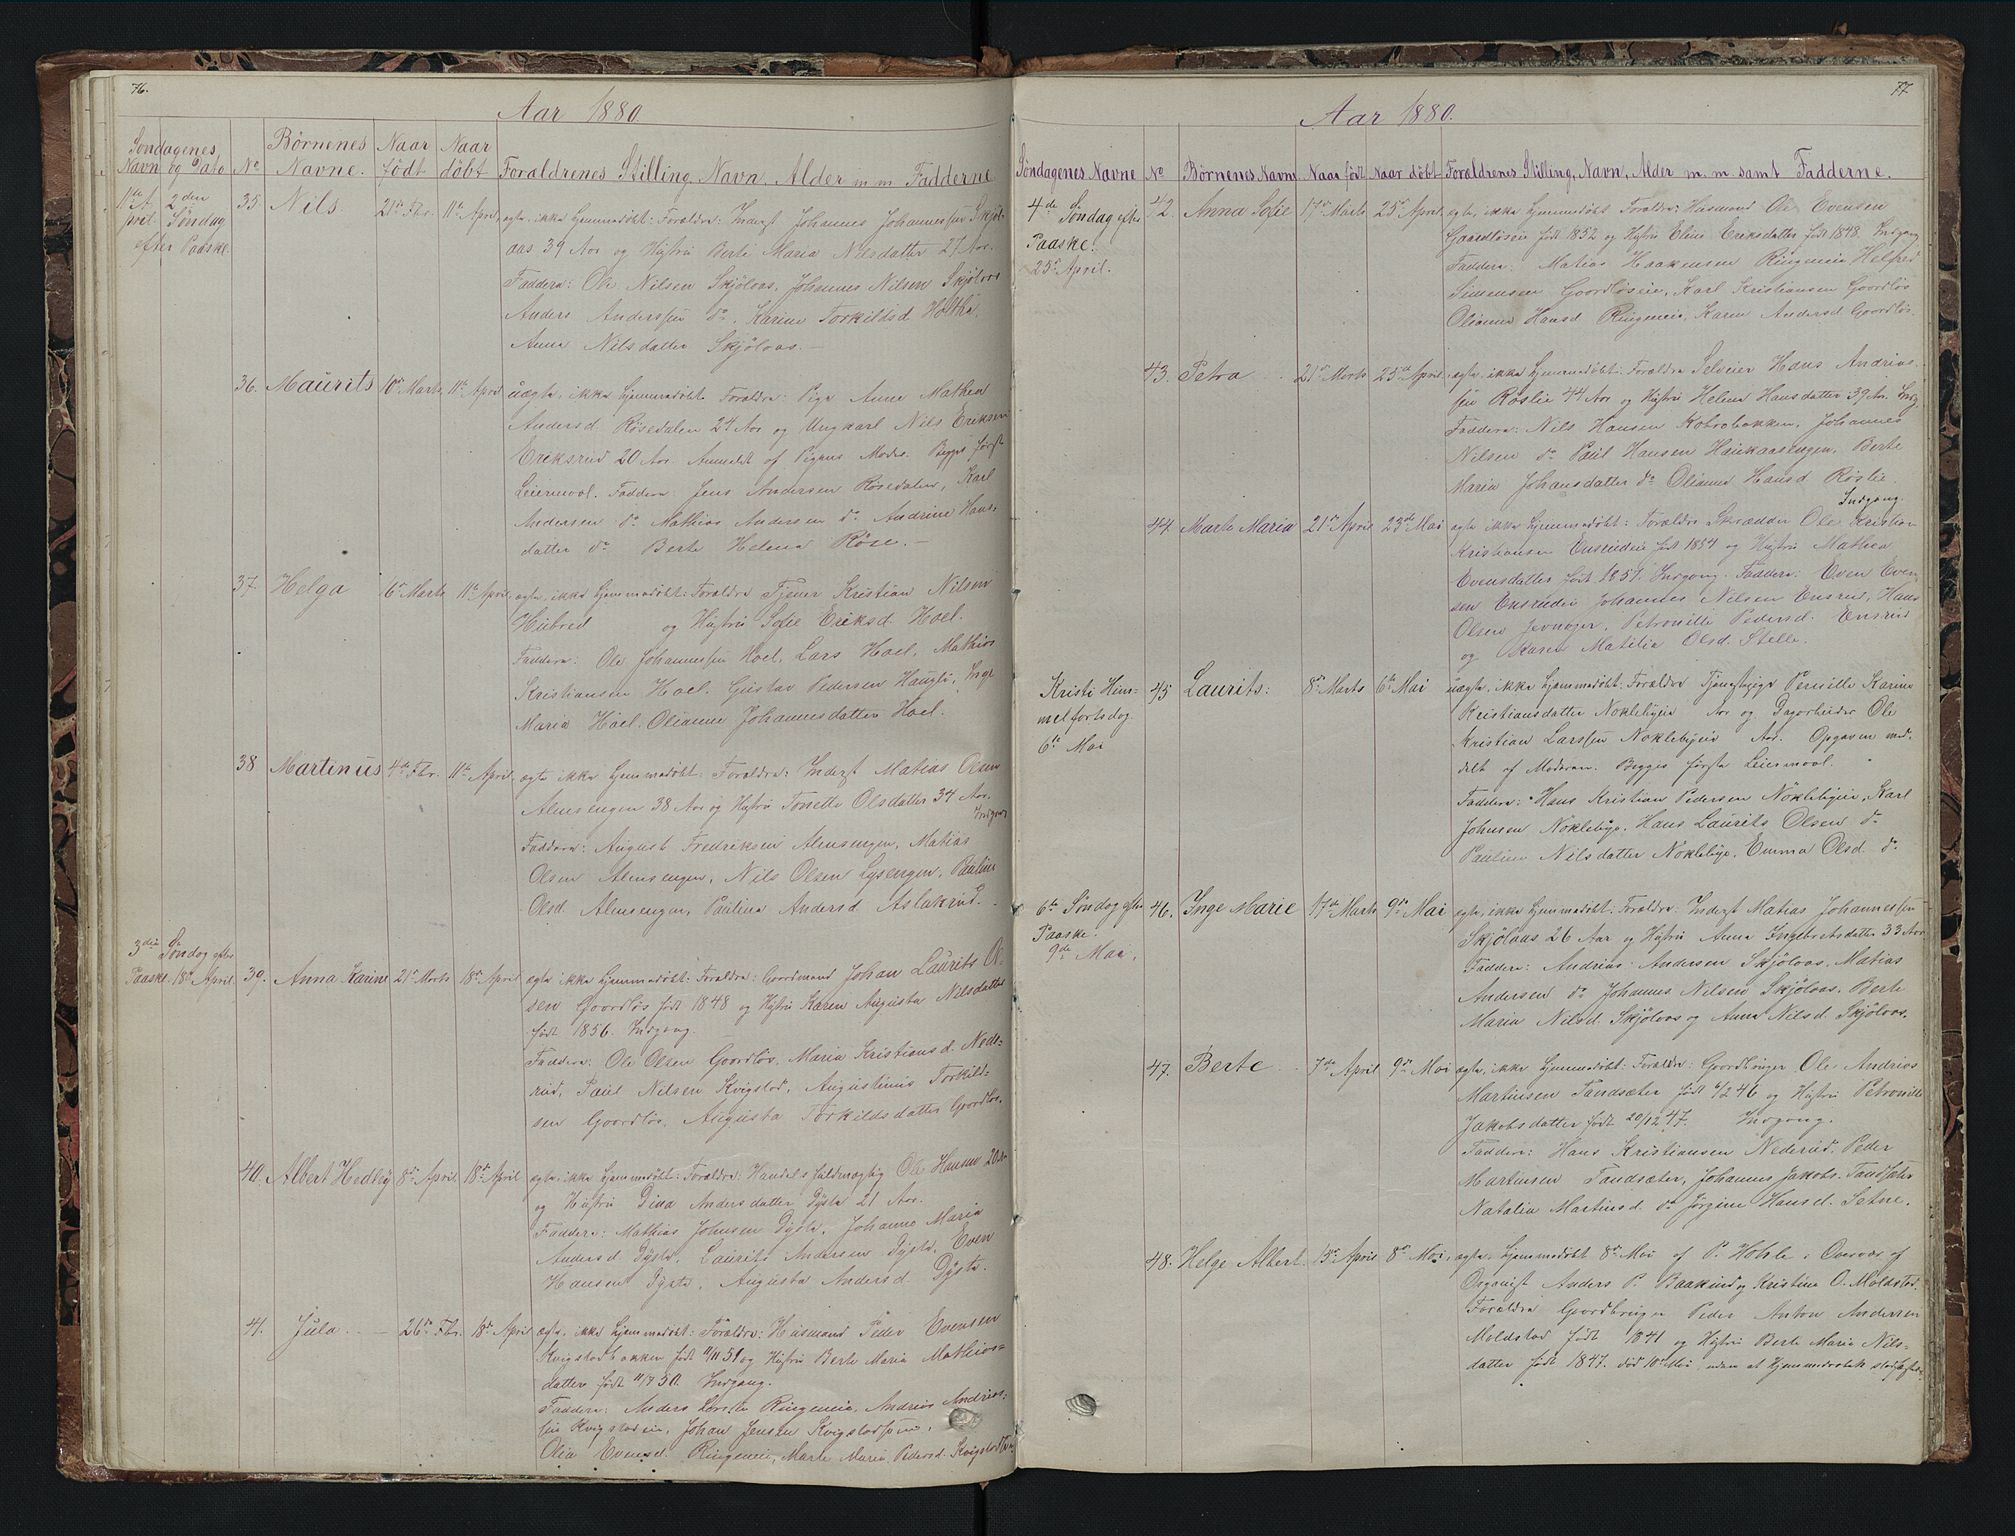 76.
Aar 1880.
Søndagenes Navn og Dato
No
Børnenes Navne.
Naar født
Naar døbt
Forældrenes Stilling, Navn, Alder m m Fadderne
11te April 2den Søndag efter Paaske.
35 Nils. 21de Fbr. 11te April ægte, ikke hjemmedøbt: Forældre: Inderst Johannes Johannessen Skjøl-
aas 39 Aar og Hustru Berte Maria Nilsdatter 27 Aar.
Faddere: Ole Nilsen Skjølaas, Johannes Nilsen Skjølaas
Anders Anderssen do. Karine Torkildsd Holtha.
Anna Nilsdatter Skjølaas.
36. Maurits 10de Marts 11te April uægte, ikke hjemmedøbt Forældre: Pige Anne Mathea
Andersd. Røsedalen 24 Aar og Ungkarl Nils Eriksen
Eriksrud 20 Aar. Anmeldt af Pigens Moder. Begges første
Leiermaal. Faddere: Jens Andersen Røsedalen, Karl
Andersen do Mathias Andersen do. Andrine Hans-
datter do Berte Helena Røse.
37. Helga 6te Marts 11te April ægte, ikke hjemmedøbt: Forældre Tjener Kristian Nilsen
Hubred og Hustru Sofie Eriksd. Hoel.
Faddere: Ole Johannessen Hoel, Lars Hoel, Mathias
Kristiansen Hoel, Gustav Pedersen Haugli, Inge
Maria Hoel. Olianne Johannesdatter Hoel.
38 Martinus 4de Fbr. 11te April ægte ikke hjemmedøbt: Forældre: Inderst Matias Olsen
Almsengen 38 Aar og Hustru Tonette Olsdatter 34 Aar.
Indgang
Faddere: August Fredriksen Almsengen, Matias
Olsen Almsengen, Nils Olsen Lysengen, Pauline
Olsd. Almsengen, Paulina Andersd. Aslakrud.
3die Søndag efter
Paaske 18de April. 39. Anna Karine 21de Marts 18de April ægte ikke hjemmedøbt: Forældre: Gaardmand Johan Laurits Ol-
sen Gaardløs født 1848 og Hustru Karen Augusta Nilsdatter
født 1856. Indgang.
Faddere: Ole Olsen Gaardløs, Maria Kristiansd. Nede-
rud, Paul Nilsen Kvigstad, Augustinus Torkild-
sen Gaardløs, Augusta Torkildsdatter Gaardløs.
40. Albert Hedley 8de April 18de April ægte, ikke hjemmedøbt: Forældre: Handelsfuldmægtig Ole Hansen 20 Aar
og Hustru Dina Andersdatter Dysta 21 Aar.
Faddere: Mathias Johnsen Dysta, Johanne Maria
Andersd Dysta, Laurits Andersen Dysta, Even
Hansen Dysta, Augusta Andersd. Dysta.
41. Jula. 26de Fbr. 18de April ægte, ikke hjemmedøbt: Forældre: Husmand Peder Evensen
Kvigstadbakken født 11/11 51 og Hustru Berte Maria Mathias-
datter født 11/7 50. Indgang.
Faddere: Anders Larsen Ringeneie, Andrias Andrias-
sen Kvigstadeie, Johan Jensen
Olia Evensd. Ringeneie, Marte Maria Pedersd. Kvigstad
77
Aar 1880.
Søndagenes Navne No Børnenes Navne Naar født Naar døbt Forældrenes Stilling, Navn, Alder m. m. samt Fadderne.
4de Søndag efter
Paaske.
25de April.
42. Anna Sofie 17de Marts 25de April ægte, ikke hjemmedøbt Forældre: Husmand Ole Evensen
Gaardløseie født 1852 og Hustru Eline Eriksdatter født 1848. Indgang
Faddere: Matias Haakensen Ringeneie Helfred
Simensen Gaardløseie, Karl Kristiansen Gaardløs
Olianne Hansd Ringeneie, Karen Andersd Gaardløs.
43. Petra 21de Marts 25de April ægte, ikke hjemmedøbt: Forældre Selveier Hans Andrias-
sen Røslie 44 Aar og Hustru Helene Hansdatter 39 Aar. Indg
Faddere: Nils Hansen Kolrobakken, Johannes
Nilsen do Paul Hansen Haukaasengen, Berte
Maria Johansdatter do Olianne Hansd Røslie.
Indgang.
44. Marte Maria 21de April 23de Mai ægte ikke hjemmedøbt: Forældre Skrædder Ole Kristian
Kristiansen Ensrudeie født 1854 og Hustru Mathea
Evensdatter født 1851. Indgang. Faddere: Even Even-
sen Ensrudeie Johannes Nilsen Ensrud, Hans
Olsen Jevnager, Petronille Pedersd. Ensrud
og Karen Matilia Olsd. Stelle.
Kristi Him-
melfartsdag
6te Mai
45 Laurits: 8de Marts 6te Mai uægte, ikke hjemmedøbt: Forældre Tjenestepige Pernille Karine
Kristiansdatter Nøklebyeie Aar og Dagarbeider Ole
Kristian Larssen Nøklebyeie Aar. Opgaven med-
delt af Moderen. Begges første Leiermaal.
Faddere: Hans Kristian Pedersen Nøklebyeie, Karl
Johnsen Nøklebye. Hans Laurits Olsen do
Pauline Nilsdatter Nøklebye, Emma Olsd. do
6te Søndag efter
Paaske.
9de Mai.
46. Inge Marie 17de Marts 9de Mai ægte, ikke hjemmedøbt: Forældre: Inderst Matias Johannessen
Skjølaas 26 Aar og Hustru Anna Ingebretsdatter 33 Aar
Faddere: Andrias Andersen Skjølaas, Matias
Andersen do Johannes Nilsen Skjølaas, Berte
Maria Nilsd. Skjølaas og Anna Nilsd. Skjølaas.
47. Berte 7de April 9de Mai ægte, ikke hjemmedøbt: Forældre: Gaardbruger Ole Andrias
Martinsen Tandsæter født 6/2 46 og Hustru Petronille
Jakobsdatter født 20/12 47. Indgang.
Faddere: Hans Kristiansen Nederud, Peder
Martinsen Tandsæter, Johannes Jakobs. Tandsæter
Natalia Martinsd. do Jørgine Hansd. Setne.
48. Helge Albert. 13de April 8de Mai, ægte, hjemmedøbt 8de Mai af P. Hohle i Overvær af
Organist Anders P. Baakind og Kristine O. Molstad.
Forældre Gaardbruger Peder Anton Andersen
Molstad født 1841 og Hustru Berte Maria Nils-
datter født 1847. død 10de Mai, uden at Hjemmedaaben stadfæstedes.